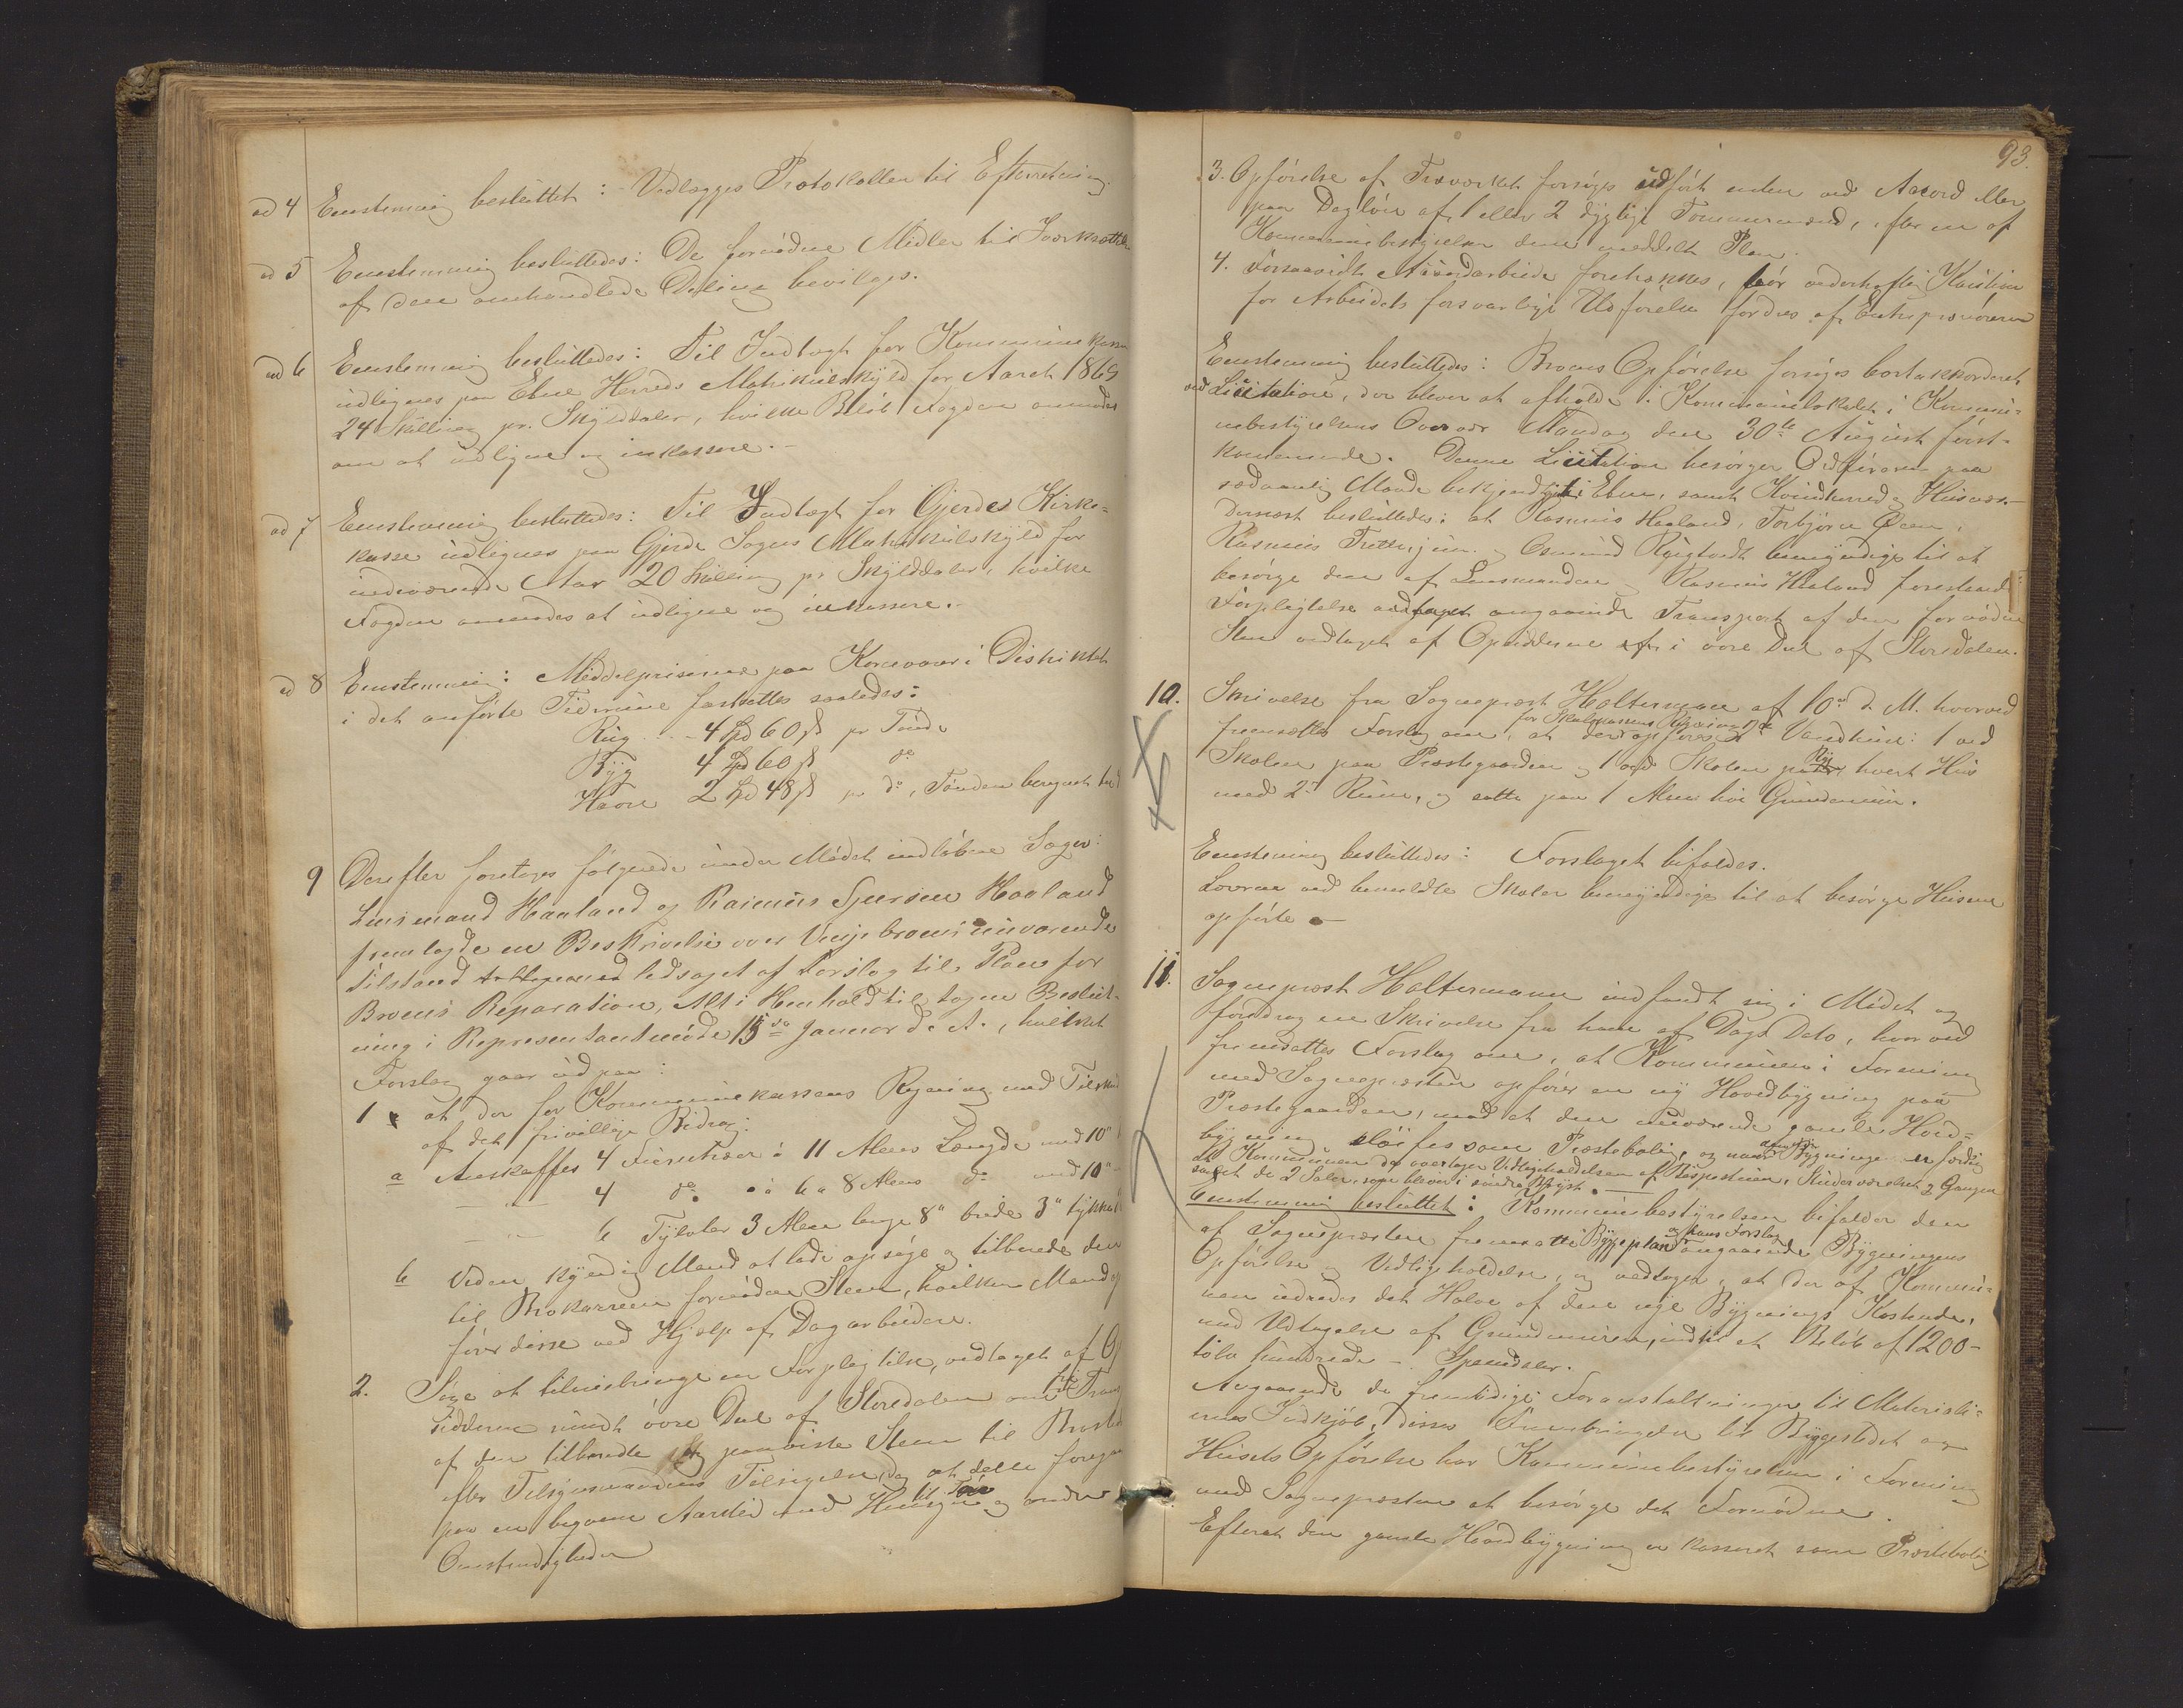 ad 4 Eenstemmig besluttet: Vedlægges Protokollen til Efterretning.
ad 5 Eenstemmig besluttedes: De fornødne Midler til Iværksættelse
af den omhandlede Deling bevilges.
ad 6 Eenstemmig besluttedes: Til Indtægt for Kommunekassen
udlignes paa Etne Herreds Matrikulskyld for Aaret 1869
24 Skilling pr. Skylddaler, hvilke Beløb Fogden anmodes
om at udligne og inkassere.-
ad 7 Eenstemmig besluttedes: Til Indtægt for Gjerdes Kirke-
kasse udlignes paa Gjerde Sogns Matrikulskyld for
indeværende Aar 20 Skilling pr Skylddaler, hvilke
Fogden anmodes at udligne og inkassere.-
ad 8 Eenstemmig: Middelpriserne paa Kornvarer i Distriktet
i det anførte Tidsrum fastsættes saaledes:
Rug - - - 4 Spd 60 ß pr Tønde
Byg 4 Spd 60 ß do
Havre 2 Spd 48 ß pr do, Tønden beregnet
9 Derefter foretoges følgende under Mødet indløbne Sager:
Lensmand Haaland og Rasmus Sjursen Haaland
fremlagde en Beskrivelse over broens nuværende
Tilstand ledsaget af Forslag til Plan for
Broens Reparation, Alt i Henhold til tagen Beslut-
ning i Representantmøde 15de Januar d. A., hvilket
Forslag gaar ud paa:
1 at der for Kommunekassens Regning med Tilskud
af det frivillige Bidrag:
a Anskaffes 4 Furutrær à 11 Alens Længde med 10"
- " - 4 do à 6 a 8 Alens do med 10"
- " - 6 Tylvter 3 Alen lange 8" brede 3" tykke
b Veden kyndig Mand at lade opsøge og tilberede den
til Brokarrene fornødne Steen, hvilken Mand
fører disse ved Hjælp af Dagarbeidere.
2. Søge at tilveiebringe en Forpligtelse, vedtaget af Op-
sidderne rundt øvre Deel af Stordalen om fri Trans
af den tilberedte paaviste Steen til Brosted
efter Tilsynsmandens Tilsigelse, dog at dette foregaar
paa en beqvem Aarstid med Hensyn til Føre og andre
Omstendigheder
93.
3. Opførelse af Træverket forsøges udført enten ved Akord eller
paa Dagløn af 1 eller 2 dygtige Tømmermænd, efter en af
Kommunebestyrelsen dem meddelt Plan.
4. Forsaavidt Akordarbeide foretrækkes, bør vederheftig Kaution
for Arbeidets forsvarlige Udførelse fordres af Entreprenøren
Eenstemmig besluttedes: Broens Opførelse forsøges bortakkorderet
ved Licitation, der bliver at afholde i Kommunelokalet i Kommu-
nebestyrelsens Overvær Mandag den 30te August først-
kommende. Denne Licitation besørger Ordføreren paa
sædvanlig Maade bekjendtgjort i Etne, samt Kvindherred og
Dernæst besluttedes: at Rasmus Haaland, Torbjørn Øen,
Rasmus Tvette, jun. og Osmund Rygtvedt bemyndiges til at
besørge den af Lensmanden og Rasmus Haaland foreslaaede
Forpligtelse angaaende Transport af den fornødne
Steen vedtaget af Opsidderne i øvre Deel af Stordalen.
10. Skrivelse fra Sognepræst Holtermann af 10de d. M. hvorved
fremsættes Forslag om, at der for Skolekassens Regning opføres 2de Vandhuse: 1 ved
Skolen paa Præstegaarden og 1 ved Skolen paa hvert Hus
med 2de Rum, og satte paa 1 Alen høi Grundmuur.
Eenstemmig besluttedes: Forslaget bifaldes.
Lærerne ved bemeldte Skoler bemyndiges til at besørge Husene
opførte -
11. Sognepræst Holtermann indfandt sig i Mødet og
foredrog en Skrivelse fra ham af Dags Dato, hvorved
fremsættes Forslag om, at Kommunen i Forening
med Sognepræsten opfører en ny Hovedbygning paa
Præstegaarden, mod at den nuværende gamle Hoved-
bygning sløifes som Præstebolig, og naar den ny Bygning er færdig
at Kommunen da overtager Vedligeholdelsen af Bispestuen, Studerværelset og Gangen
samt de 2 Sale, som bliver i søndre Røst.
Eenstemmig besluttet: Kommunebestyrelsen bifalder den
af Sognepræsten fremsatte Byggeplan og hans Forslag angaaende Bygningens
Opførelse og Vedligeholdelse, og vedtager, at der af Kommu-
nen udredes det Halve af den nye Bygnings Kostende,
med Udtagelse af Grundmuren, indtil et Beløb af 1200 -
tolv hundrede - Speciedaler.
Angaaende de fremtidige Foranstaltninger til Materiali-
ernes Indkjøb, disses Frembringelse til Byggestedet og
Husets Opførelse har Kommunebestyrelsen i Forening
med Sognepræsten at besørge det Fornødne.
Efterat den gamle Hovedbygning er kasseret som Præstebolig